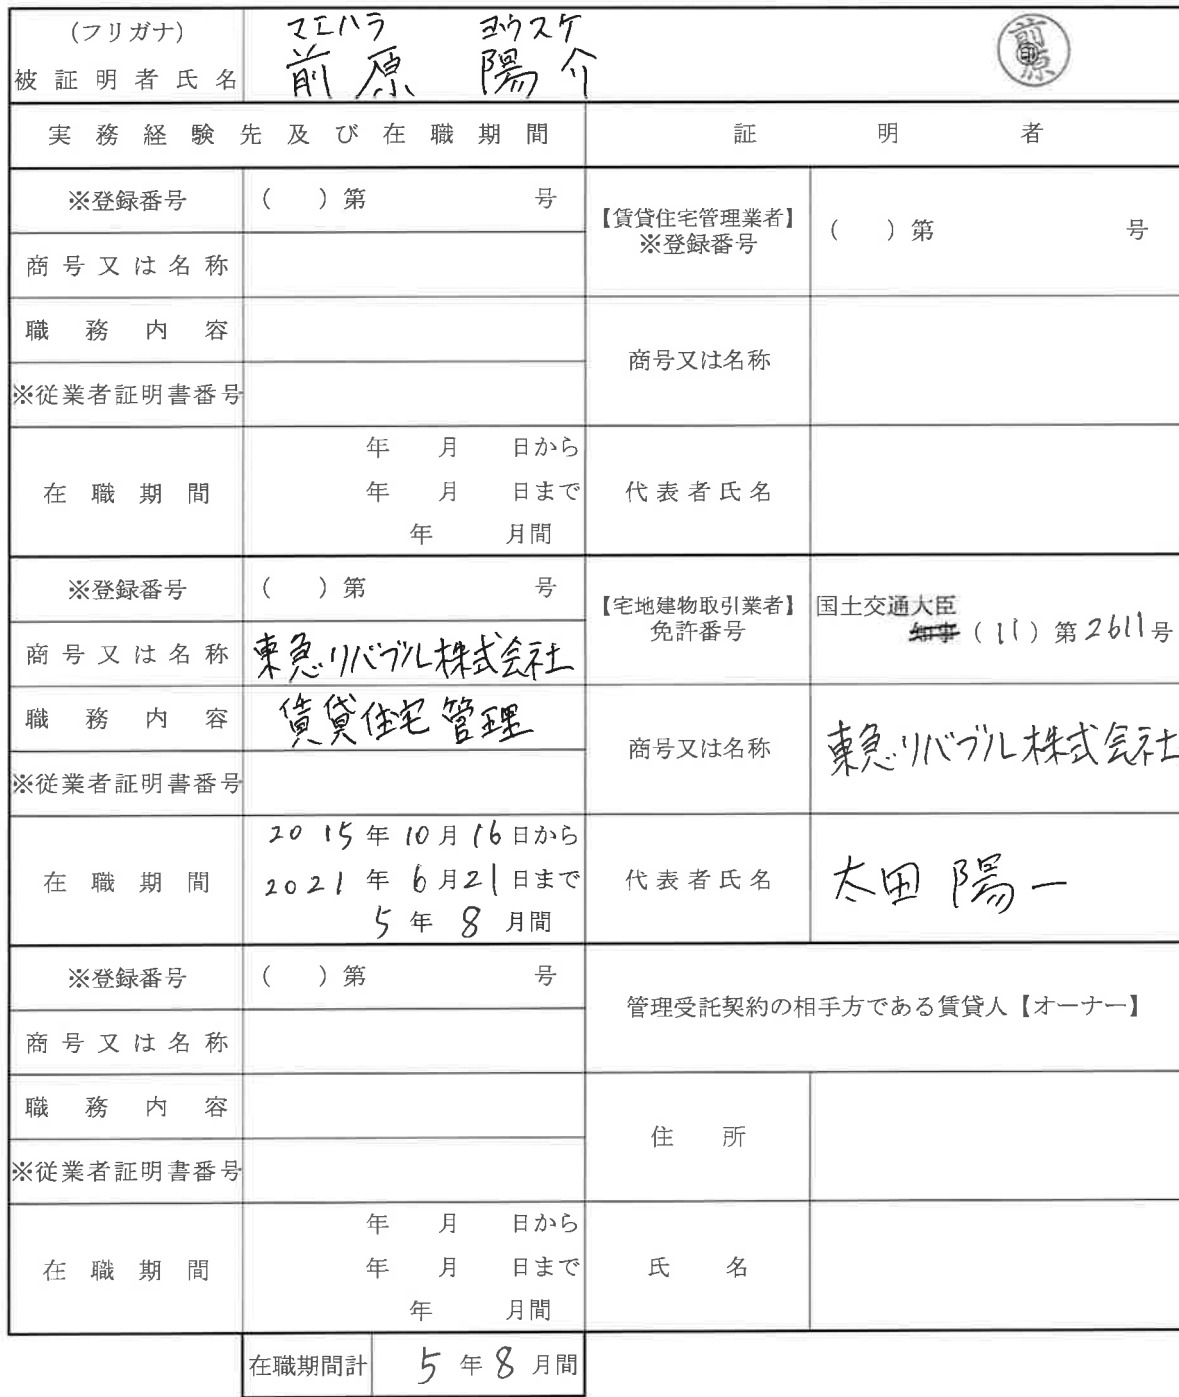 (フリガナ) マエハラ ヨウスケ
被証明者氏名 前原 陽介 前原 印
実務経験先及び在職期間 証明者
※登録番号 ( )第 号 【賃貸住宅管理業者】※登録番号 ( )第 号
商号又は名称
職務内容 商号又は名称
※従業者証明書番号
在職期間 年 月 日から
年 月 日まで 代表者氏名
年 月間
※登録番号 ( )第 号 【宅地建物取引業者】免許番号 国土交通大臣
知事 (11)第2611号
商号又は名称 東急リバブル株式会社
職務内容 賃貸住宅管理 商号又は名称 東急リバブル株式会社
※従業者証明書番号
在職期間 2015年10月16日から
2021年6月21日まで 代表者氏名 太田 陽一
5年8月間
※登録番号 ( )第 号 管理受託契約の相手方である賃貸人【オーナー】
商号又は名称
職務内容 住所
※従業者証明書番号
在職期間 年 月 日から
年 月 日まで 氏名
年 月間
在職期間計 5年8月間